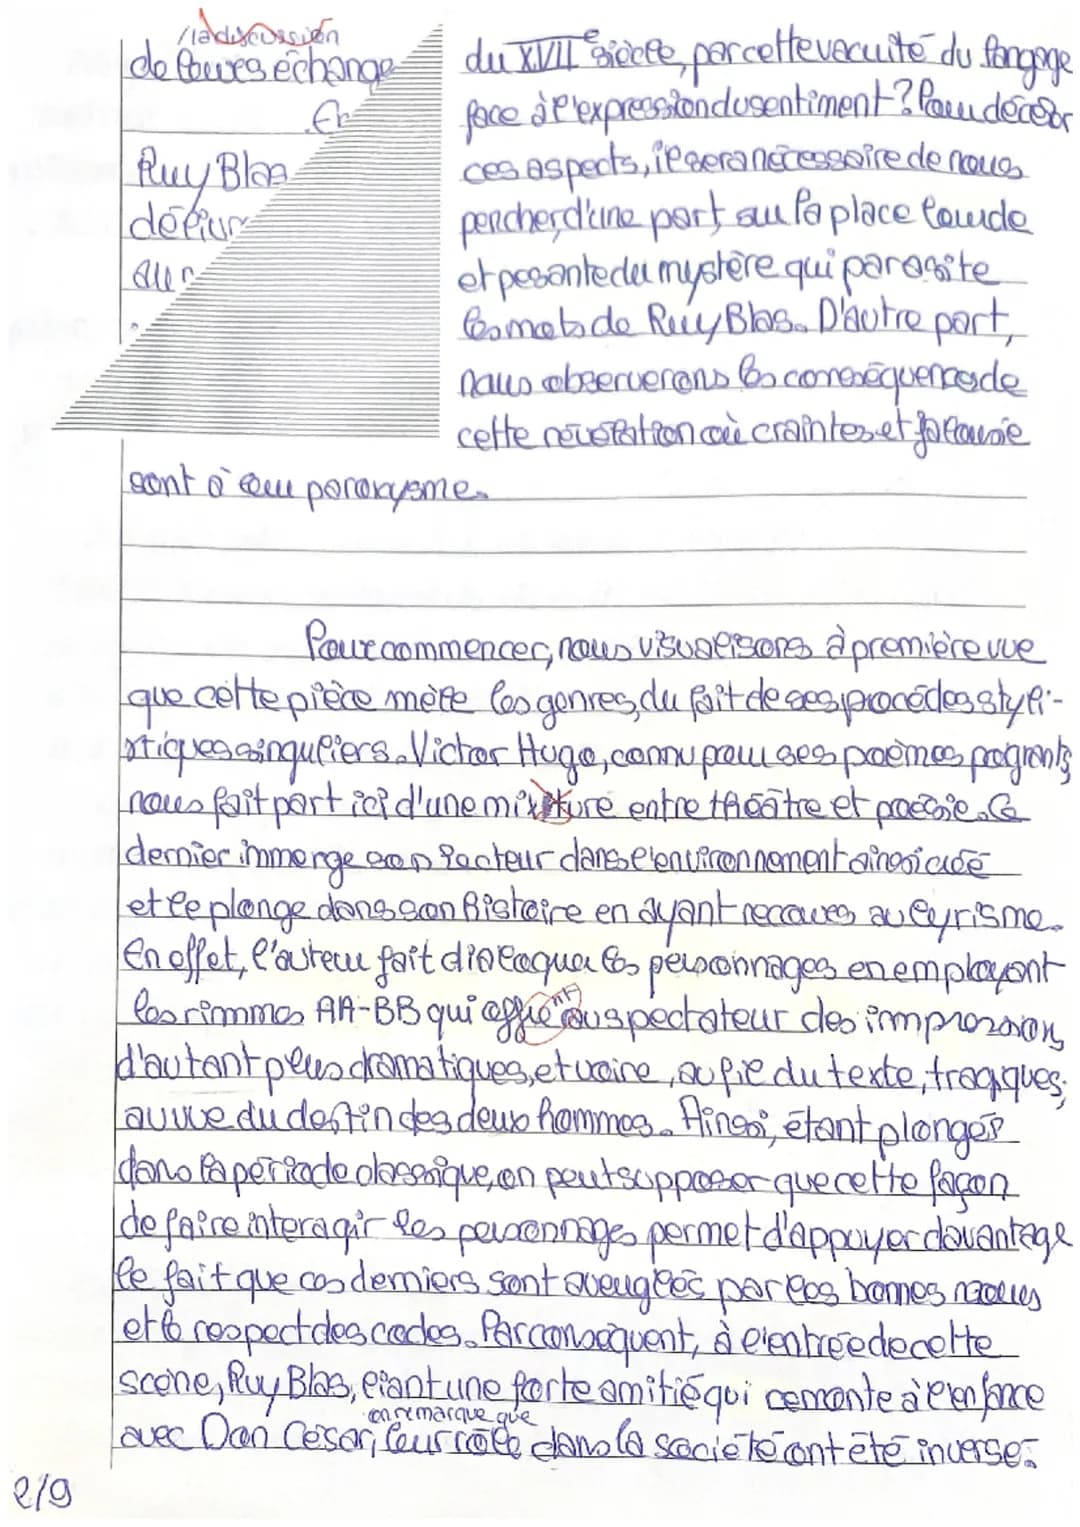 /la discussion
de leurs échange
du XVII e siècle, par cette vacuité du langage
.En
face à l'expression du sentiment? Pour déceler
Ruy Blas
ces aspects, il sera nécessaire de nous
pencher, d'une part, sur la place lourde
et pesante du mystère qui parasite
les mots de Ruy Blas. D'autre part,
nous observerons les conséquences de
cette révélation où craintes et jalousie
sont à leur paroxysme.
Pour commencer, nous visualisons à première vue
que cette pièce mêle les genres, du fait de ses procédés styli-
stiques singuliers. Victor Hugo, connu pour ses poèmes poignants
nous fait part ici d'une mixture entre théâtre et poésie. Ce
dernier immerge son lecteur dans l'environnement ainsi créé
et le plonge dans son histoire en ayant recours au lyrisme.
En effet, l'auteur fait dialoguer les personnages en employant
les rimmes AA-BB qui offrent au spectateur des impression
d'autant plus dramatiques, et voire, au fil du texte, tragiques,
au vue du destin des deux hommes. Ainsi, étant plongés
dans la période classique, on peut supposer que cette façon
de faire interagir les personnages permet d'appuyer davantage
le fait que ces derniers sont aveuglés par les bonnes mœurs
et le respect des codes. Par conséquent, à l'entrée de cette
scène, Ruy Blas, liant une forte amitié qui remonte à l'enfance
on remarque que
avec Don César, leur rôle dans la société ont été inversé.
2/9